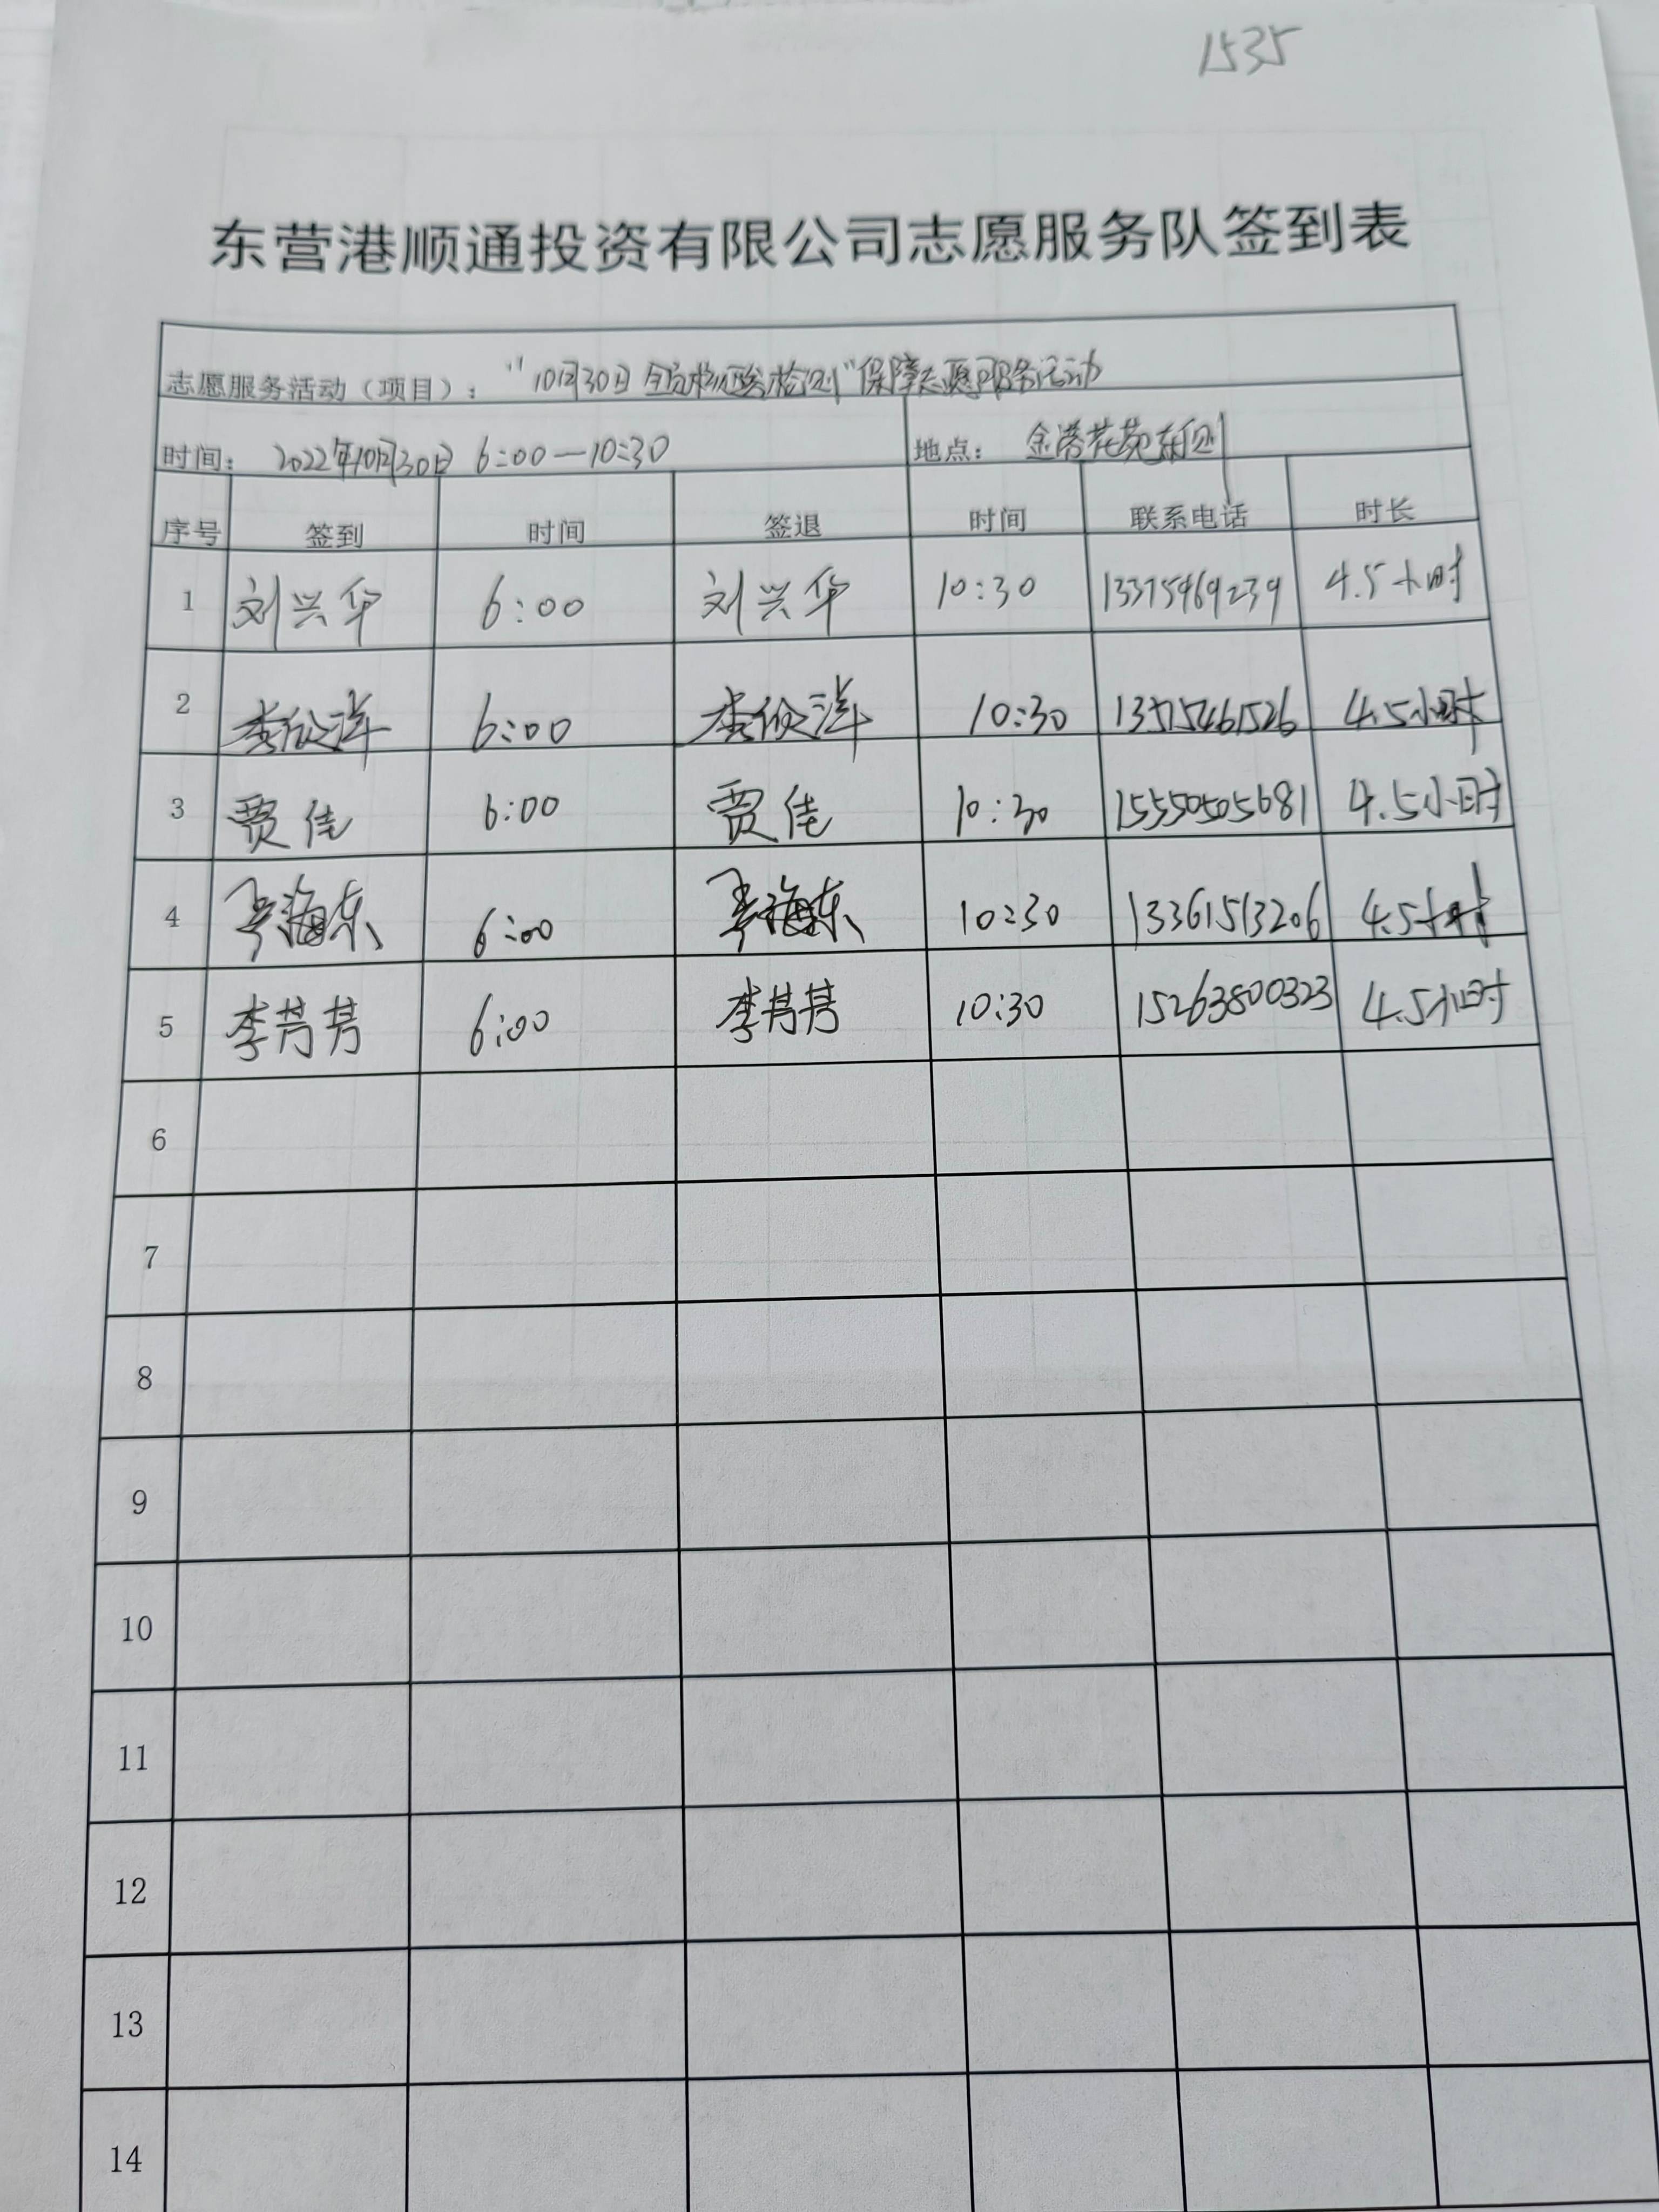 1535
东营港顺通投资有限公司志愿服务队签到表
志愿服务活动（项目）： "10月30日全员核酸检测"保障志愿服务活动
时间： 2022年10月30日 6:00—10:30 地点： 金港花苑东侧
序号 签到 时间 签退 时间 联系电话 时长
1 刘兴华 6:00 刘兴华 10:30 13375469239 4.5小时
2 李欣洋 6:00 李欣洋 10:30 4.5小时
3 贾佳 6:00 贾佳 10:30 15550505681 4.5小时
4 海东 6:00 海东 10:30 13361513206 4.5小时
5 李芳芳 6:00 李芳芳 10:30 15263800323 4.5小时
6
7
8
9
10
11
12
13
14